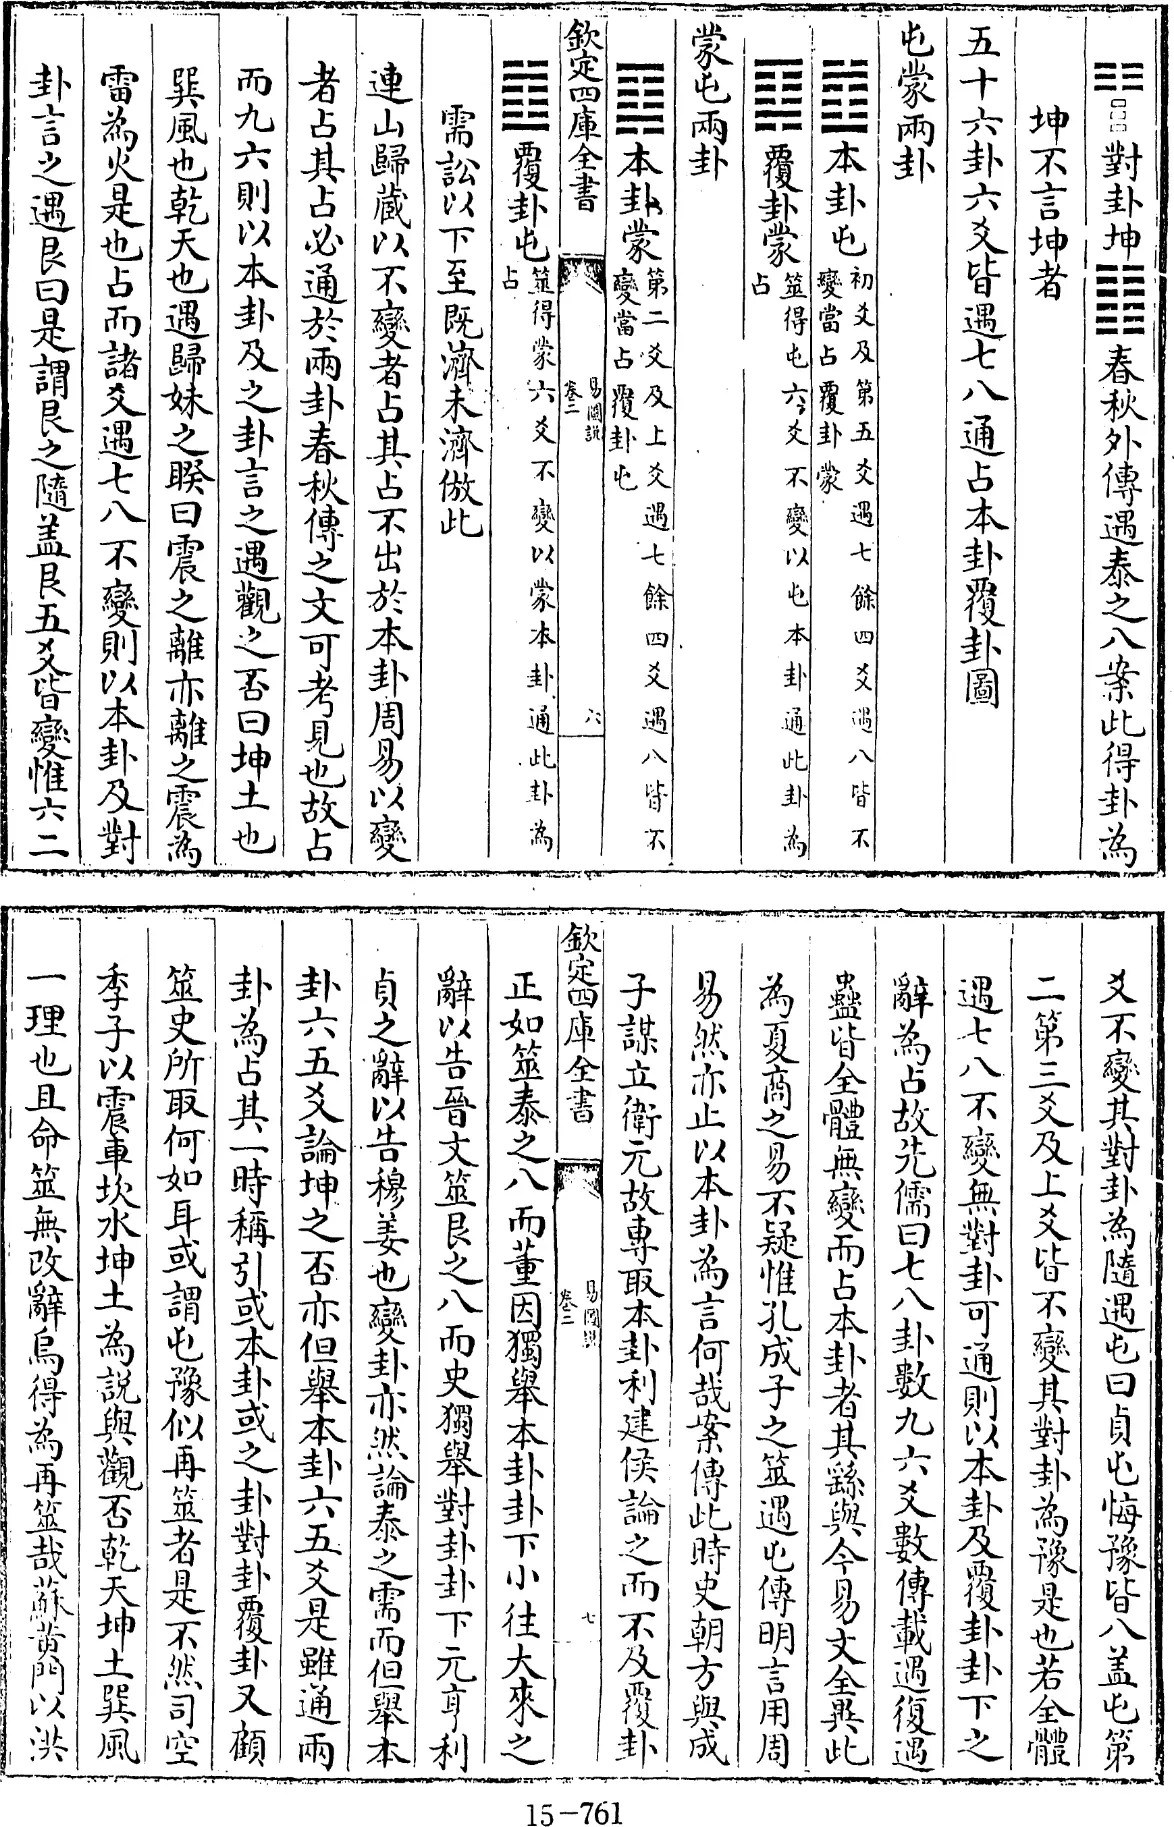 對卦坤
春秋外傳遇泰之八案此得卦為
坤不言坤者
五十六卦六爻皆遇七八通占本卦覆卦圖
屯蒙兩卦
本卦屯
初爻及第五爻遇七餘四爻遇八皆不
變當占覆卦蒙
覆卦蒙
筮得屯六爻不變以屯本卦通此卦為
占
蒙屯兩卦
本卦蒙
第二爻及上爻遇七餘四爻遇八皆不
變當占覆卦屯
欽定四庫全書
易圖說
卷二
六
覆卦屯
筮得蒙六爻不變以蒙本卦通此卦為
占
需訟以下至既濟未濟倣此
連山歸藏以不變者占其占不出於本卦周易以變
者占其占必通於兩卦春秋傳之文可考見也故占
而九六則以本卦及之卦言之遇觀之否曰坤土也
巽風也乾天也遇歸妹之睽曰震之離亦離之震為
雷為火是也占而諸爻遇七八不變則以本卦及對
卦言之遇艮曰是謂艮之隨盖艮五爻皆變惟六二
爻不變其對卦為隨遇屯曰貞屯悔豫皆八盖屯第
二第三爻及上爻皆不變其對卦為豫是也若全體
遇七八不變無對卦可通則以本卦及覆卦卦下之
辭為占故先儒曰七八卦數九六爻數傳載遇復遇
蠱皆全體無變而占本卦者其繇與今易文全異此
為夏商之易不疑惟孔成子之筮遇屯傳明言用周
易然亦止以本卦為言何哉案傳此時史朝方與成
子謀立衛元故專取本卦利建侯論之而不及覆卦
欽定四庫全書
易圖說
卷二
七
正如筮泰之八而董因獨舉本卦卦下小往大來之
辭以告晉文筮艮之八而史獨舉對卦卦下元亨利
貞之辭以告穆姜也變卦亦然論泰之需而但舉本
卦六五爻論坤之否亦但舉本卦六五爻是雖通兩
卦為占其一時稱引或本卦或之卦對卦覆卦又顧
筮史所取何如耳或謂屯豫似再筮者是不然司空
季子以震車坎水坤土為說與觀否乾天坤土巽風
一理也且命筮無改辭烏得為再筮哉蘇黄門以洪
15-761